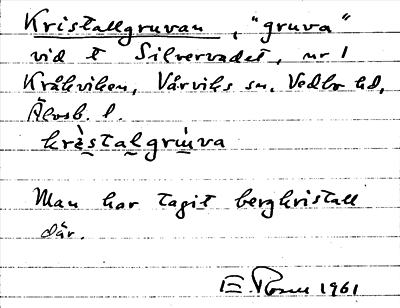 Kristallgruvan, "gruva"
vid t Silvervadet, nr 1
Kråkviken, Vårviks sn, Vedbo hd,
Älvsb. l.
krèstalgruva
Man har tagit bergkristall
där.
E. Rosen 1961